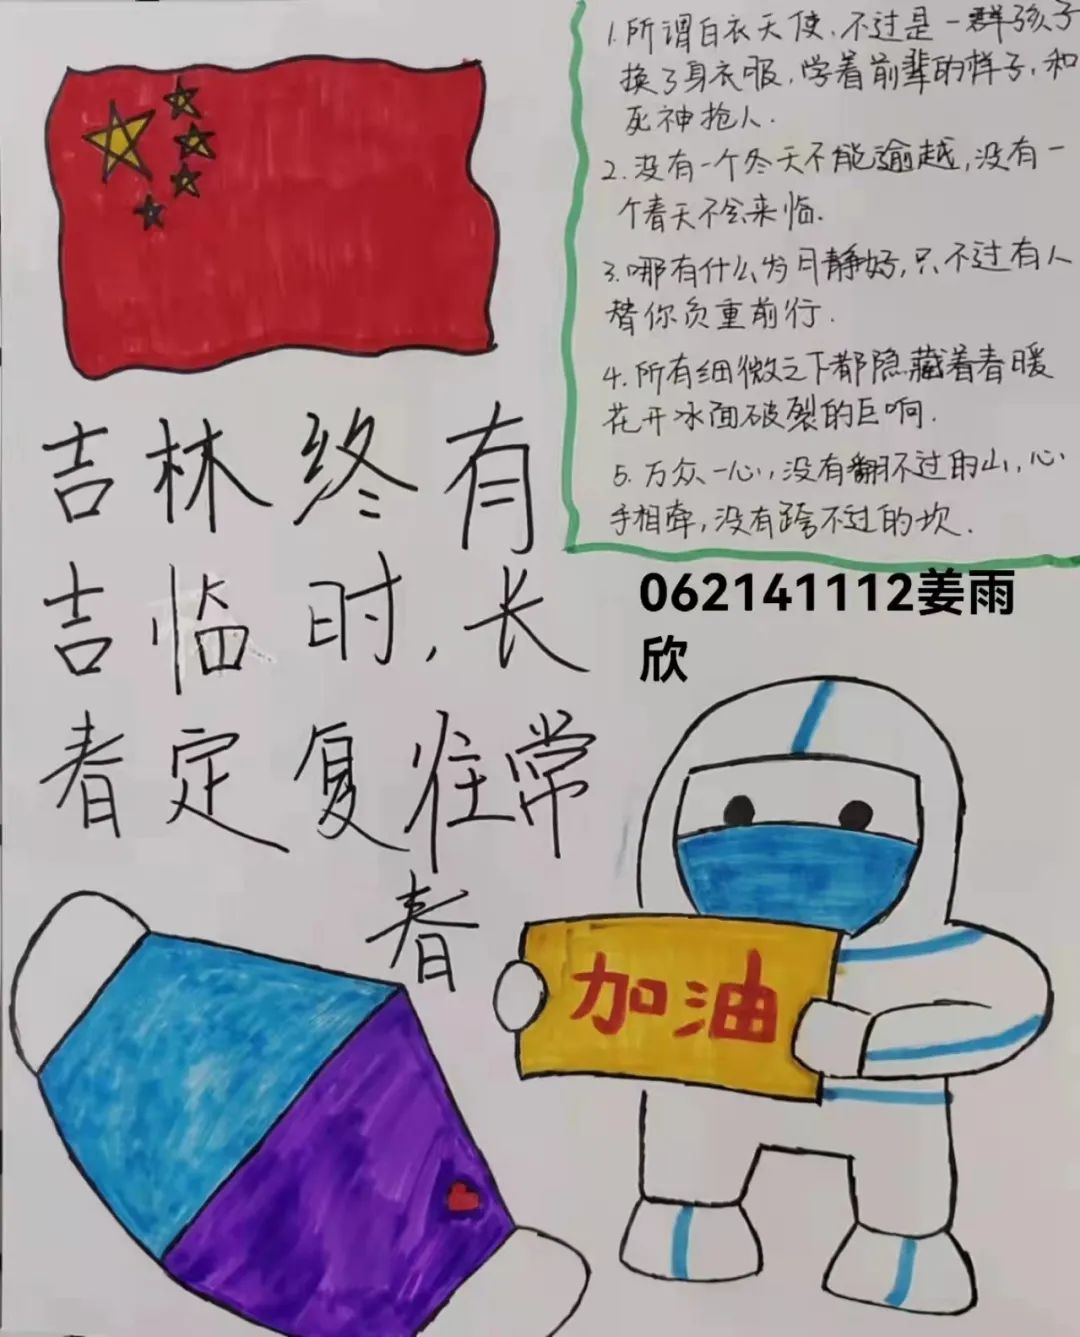 1.所谓白衣天使,不过是一群孩子
换了身衣服,学着前辈的样子,和
死神抢人.
2.没有一个冬天不能逾越,没有一
个春天不会来临.
3.哪有什么岁月静好,只不过有人
替你负重前行.
4.所有细微之下都隐藏着春暖
花开冰面破裂的巨响.
5.万众一心,没有翻不过的山,心
手相牵,没有跨不过的坎.
吉林终有
吉临时,长
春定复往常
春
062141112姜雨
欣
加油